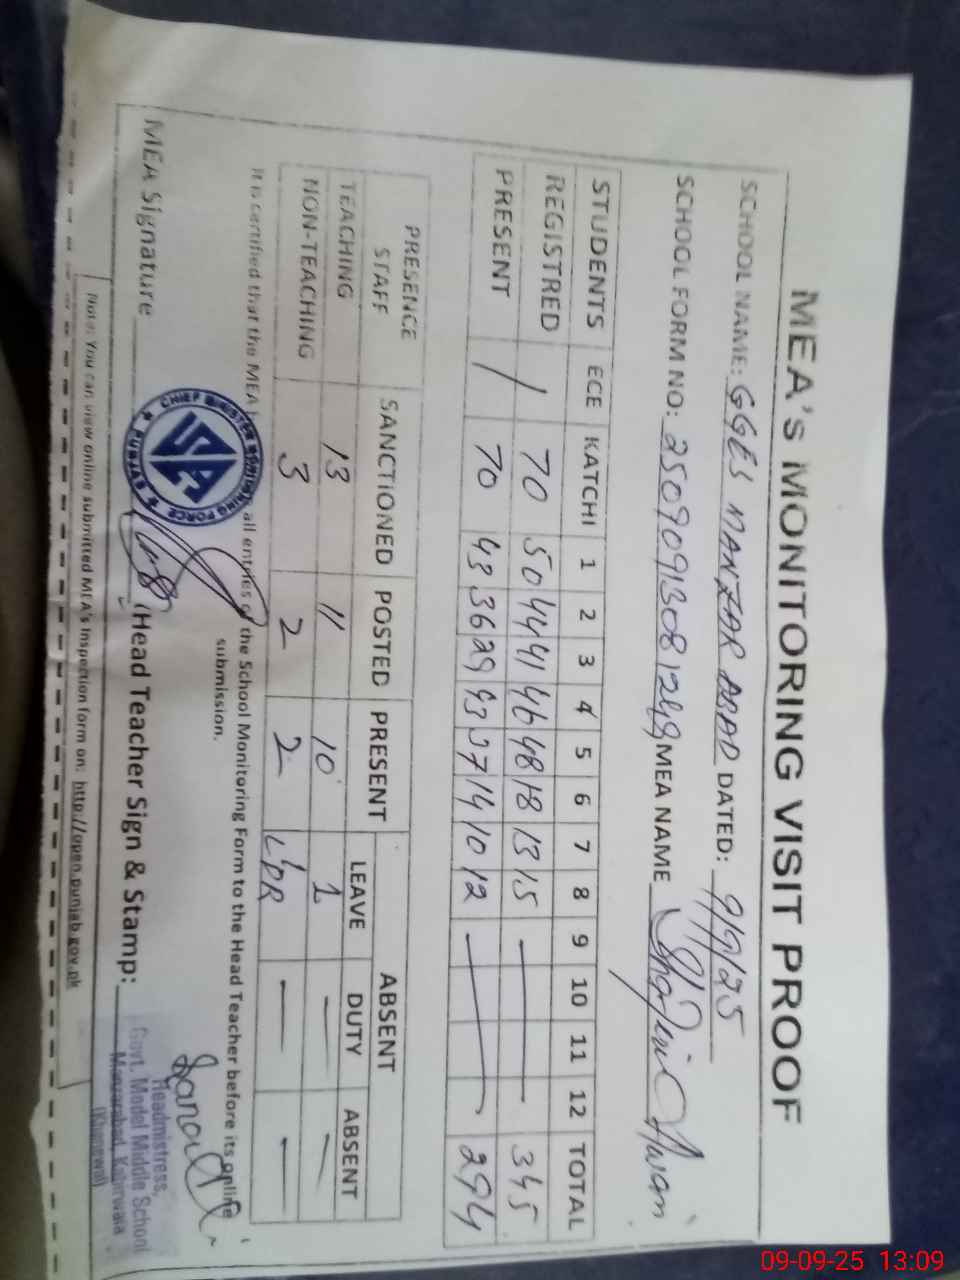 MEA'S MONITORING VISIT PROOF
SCHOOL NAME: GGES MANZAR ABAD DATED: 9/9/25
SCHOOL FORM NO: MEA NAME Awan
STUDENTS ECE KATCHI 1 2 3 4 5 6 7 8 9 10 11 12 TOTAL
REGISTRED / 70 50 44 41 46 48 18 13 15 — 345
PRESENT / 70 43 36 29 43 37 14 10 12 — 294
PRESENCE STAFF SANCTIONED POSTED PRESENT ABSENT
LEAVE DUTY ABSENT
TEACHING 13 11 10 1 — —
NON-TEACHING 3 2 2 — —
It is certified that the MEA all entries of the School Monitoring Form to the Head Teacher before its online
submission.
CHIEF MINISTER MONITORING FORCE
PUNJAB
MEA Signature (Head Teacher Sign & Stamp:
Headmistress,
Govt. Model Middle School
Kabirwala
(Khanewal)
Note: You can view online submitted MEA's Inspection form on: http://open.punjab.gov.pk
09-09-25 13:09